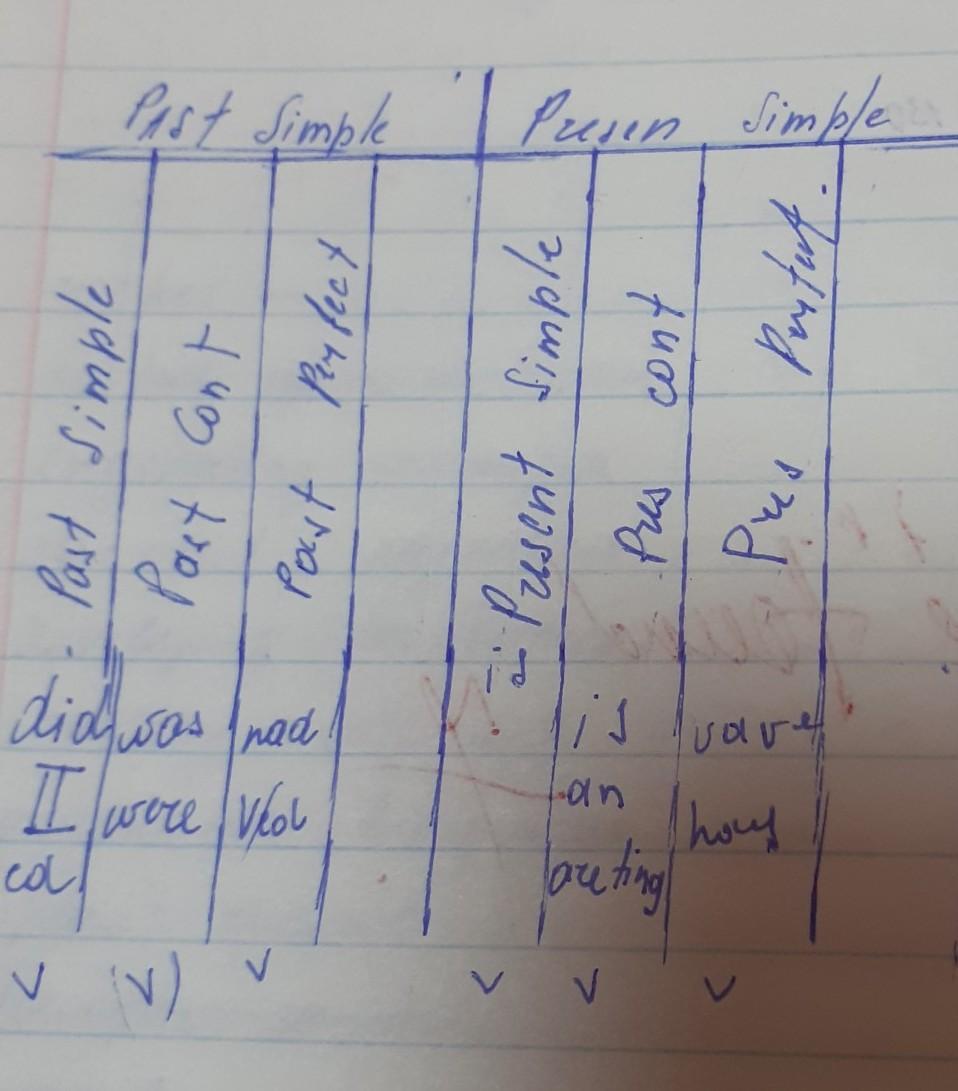 Past Simple
Presen Simple
Past Simple
Past Cont
Past Perfect
Present Simple
Pres cont
Pres Perfect.
did was had is vave
II were V/ed an
ed are+ing
V (V) V V V V